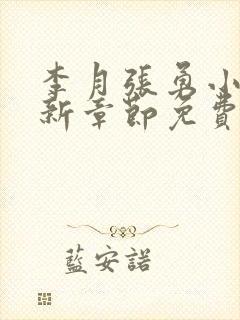 李月張勇小
新章節免費
藍安諾